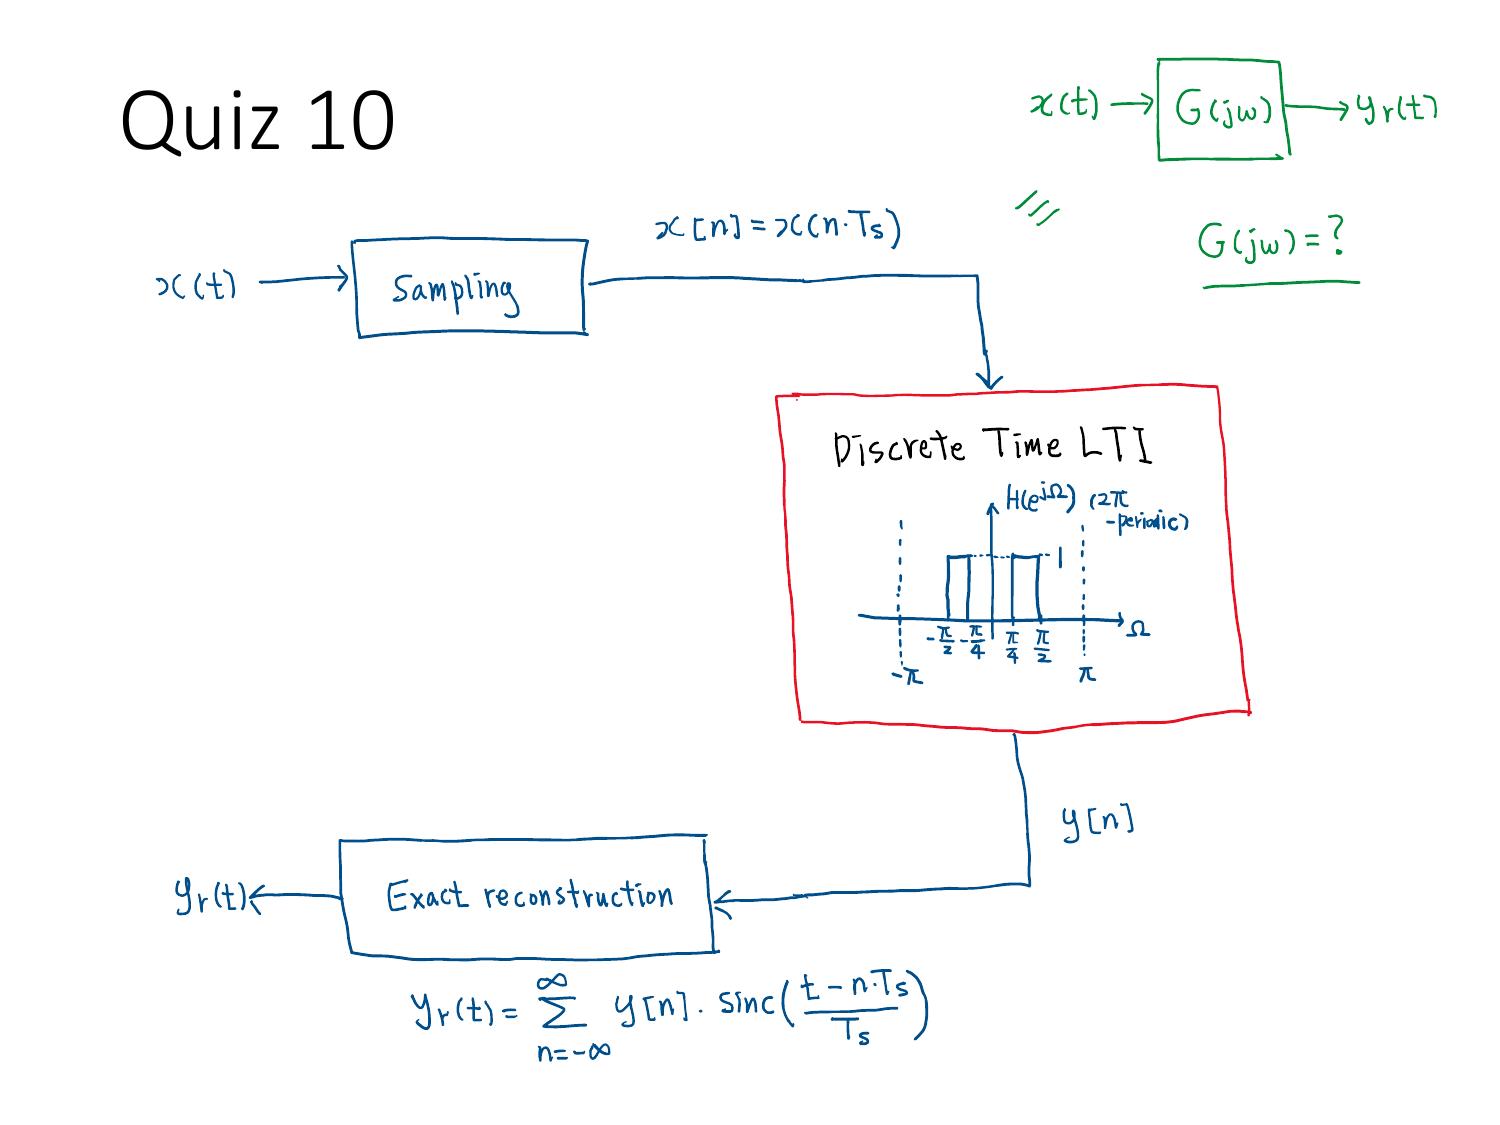 Quiz 10
x(t) → G(jω) → yr(t)
G(jω) = ?
x[n] = x(n·Ts)
x(t) → Sampling
Discrete Time LTI
H(e^jΩ) (2π
-periodic)
1
Ω
-π/2 -π/4 π/4 π/2
-π π
y[n]
yr(t) ← Exact reconstruction
yr(t) = ∑_{n=-∞}^{∞} y[n] · sinc((t - n·Ts)/Ts)